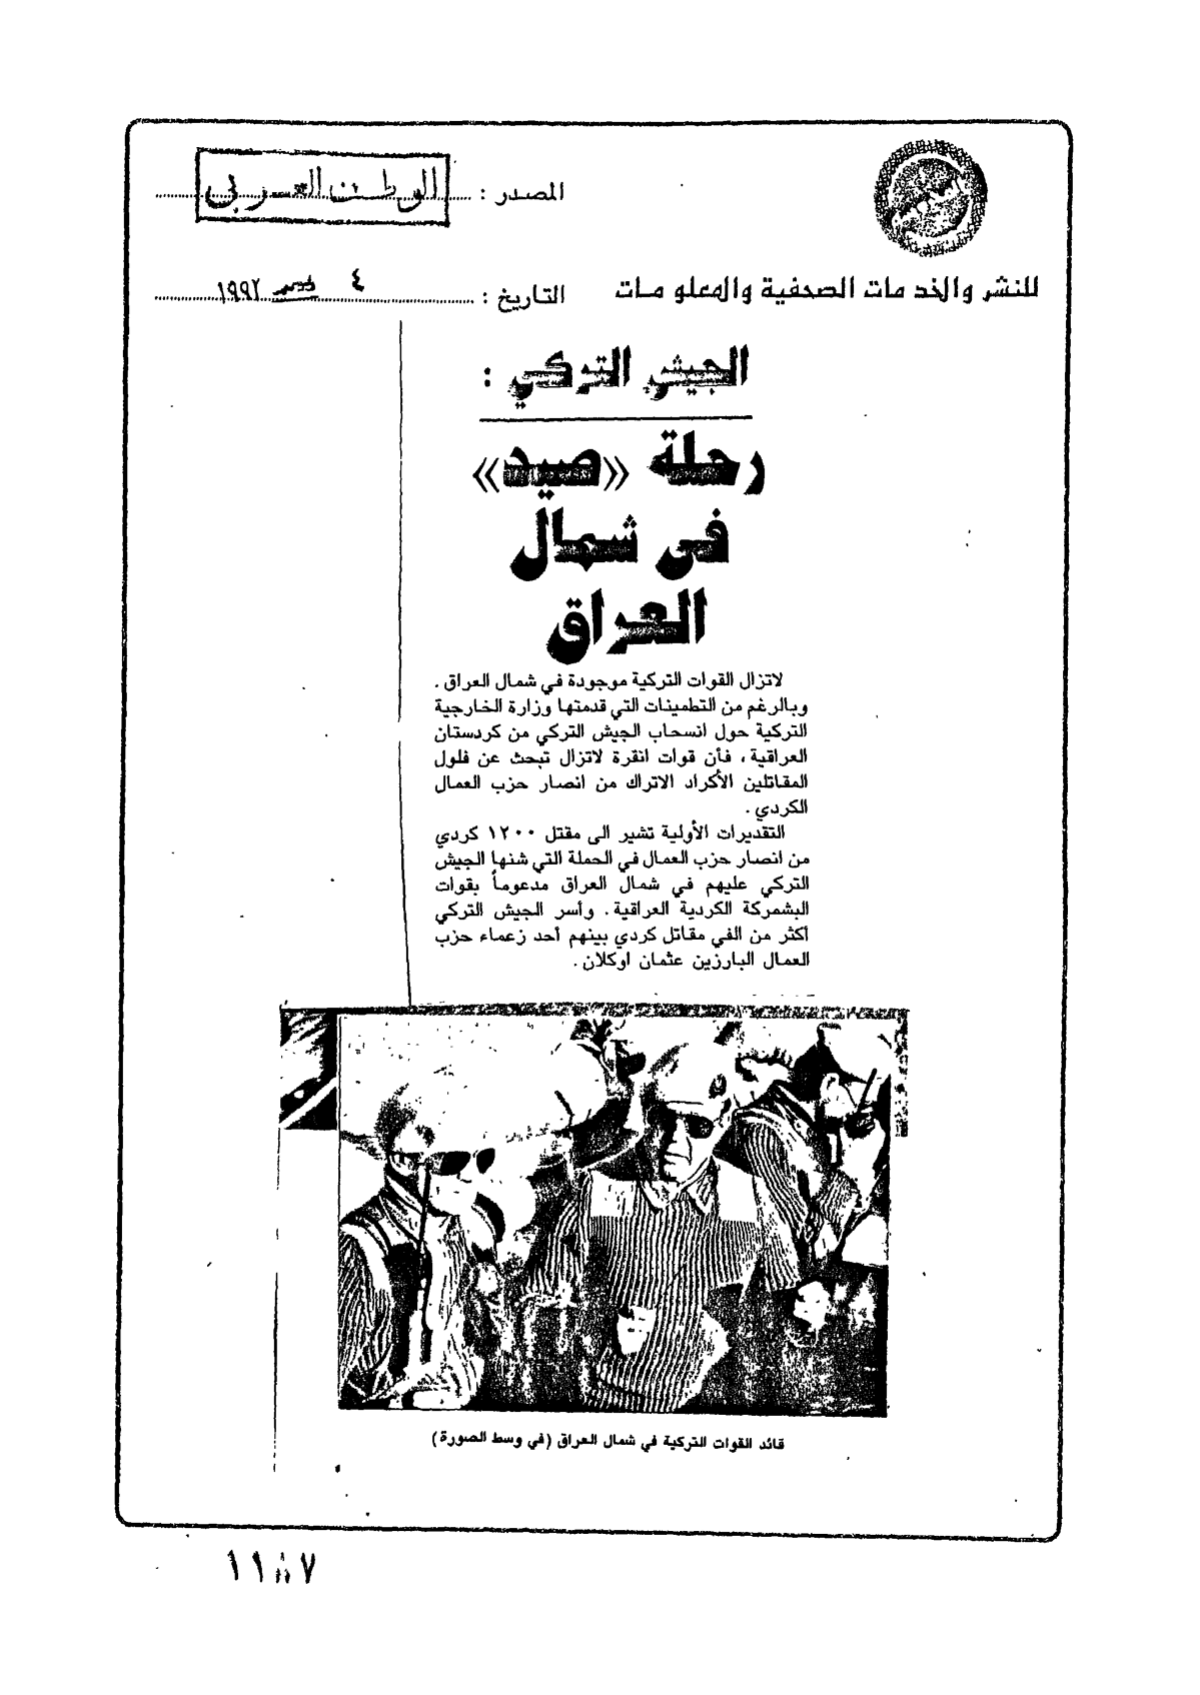 المصدر : الوطن العربي
للنشر والخدمات الصحفية والمعلومات
التاريخ : ٤ ديسمبر ١٩٩٢
الجيش التركي :
رحلة «صيد»
في شمال
العراق
لاتزال القوات التركية موجودة في شمال العراق .
وبالرغم من التطمينات التي قدمتها وزارة الخارجية
التركية حول انسحاب الجيش التركي من كردستان
العراقية ، فأن قوات انقرة لاتزال تبحث عن فلول
المقاتلين الأكراد الاتراك من انصار حزب العمال
الكردي .
التقديرات الأولية تشير الى مقتل ١٢٠٠ كردي
من انصار حزب العمال في الحملة التي شنها الجيش
التركي عليهم في شمال العراق مدعوماً بقوات
البشمركة الكردية العراقية . وأسر الجيش التركي
أكثر من الفي مقاتل كردي بينهم أحد زعماء حزب
العمال البارزين عثمان اوكلان .
قائد القوات التركية في شمال العراق (في وسط الصورة)
١١٥٧